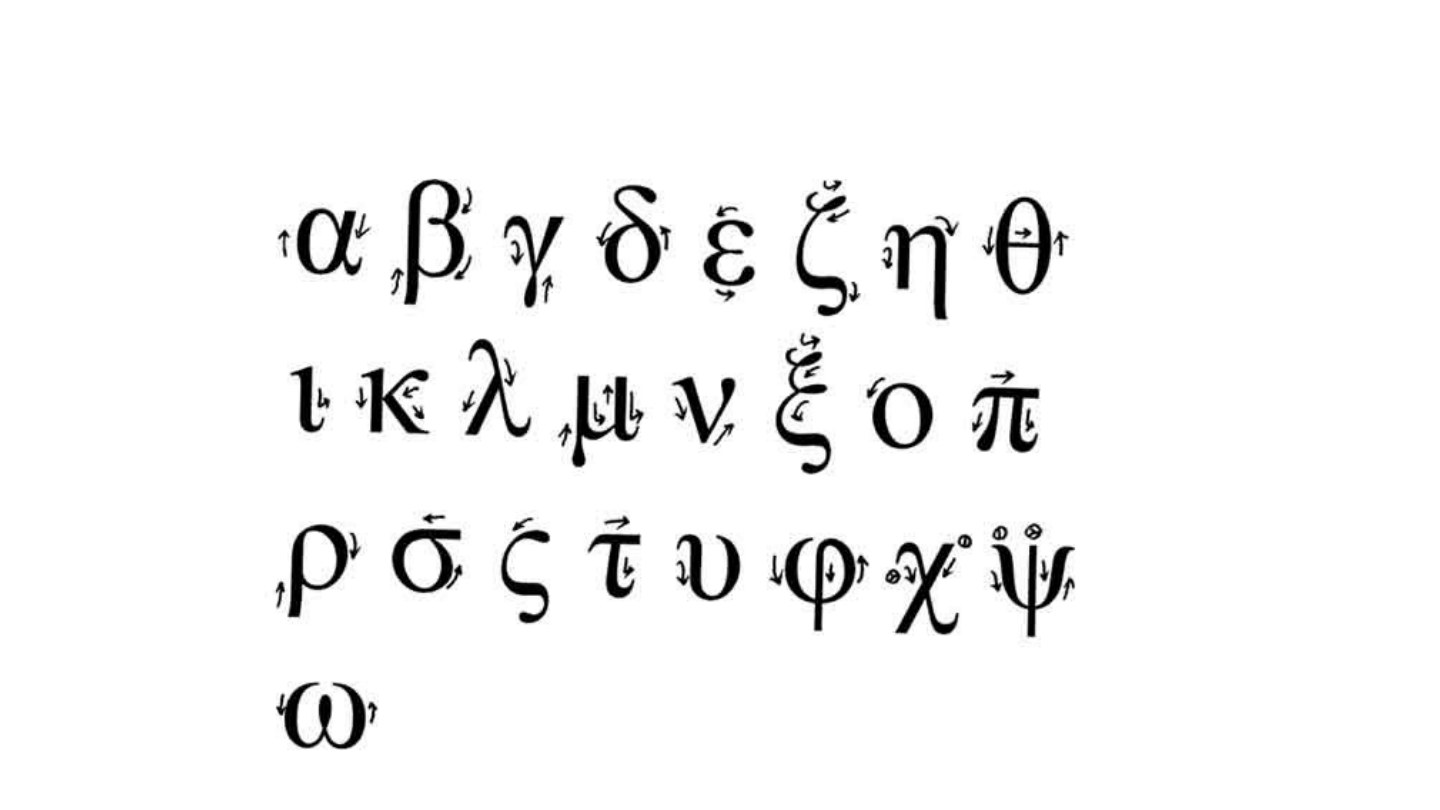 α β γ δ ε ζ η θ
ι κ λ μ ν ξ ο π
ρ σ ς τ υ φ χ ψ
ω